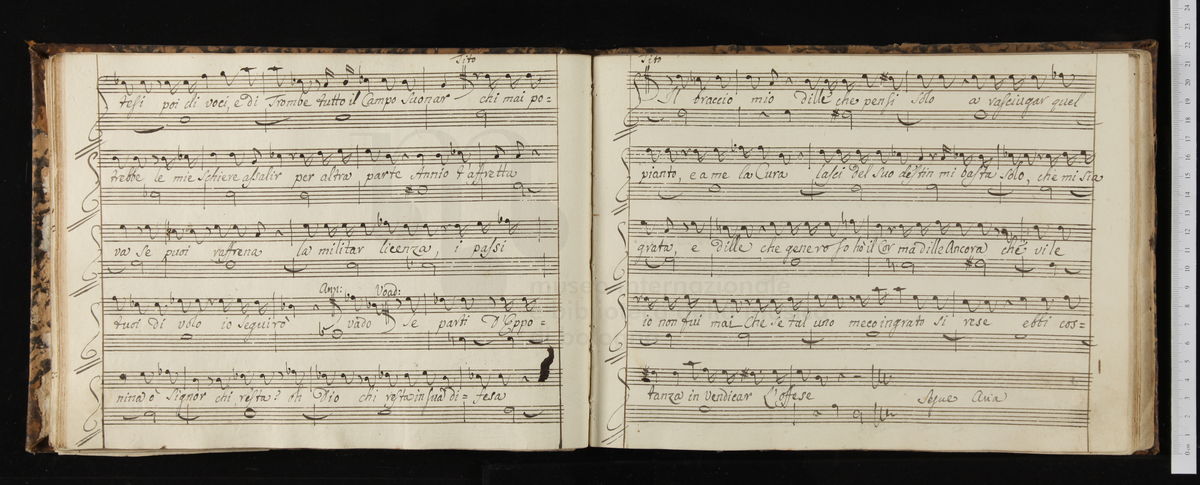 Tito
tesi poi di voci, e di Trombe tutto il Campo Suonar chi mai po=
trebbe le mie Schiere assalir per altra parte Annio t'affretta
va se puoi raffrena la militar licenza, i passi
Ann: Voad:
tuoi di volo io seguirò vado Se parti D'Eppo=
nina ò Signor chi resta? oh Dio chi resta in sua di= fesa
Tito
Il braccio mio dille che pensi solo a rasciugar quel
pianto, e a me la Cura lasci del Suo destin mi basta Solo, che mi sia
grata, e dille che generoso hò il Cor ma dille Ancora che vile
io non fui mai Che Se tal uno meco ingrato si rese ebbi cos=
tanza in vendicar L'offese Segue Aria
museo internazionale